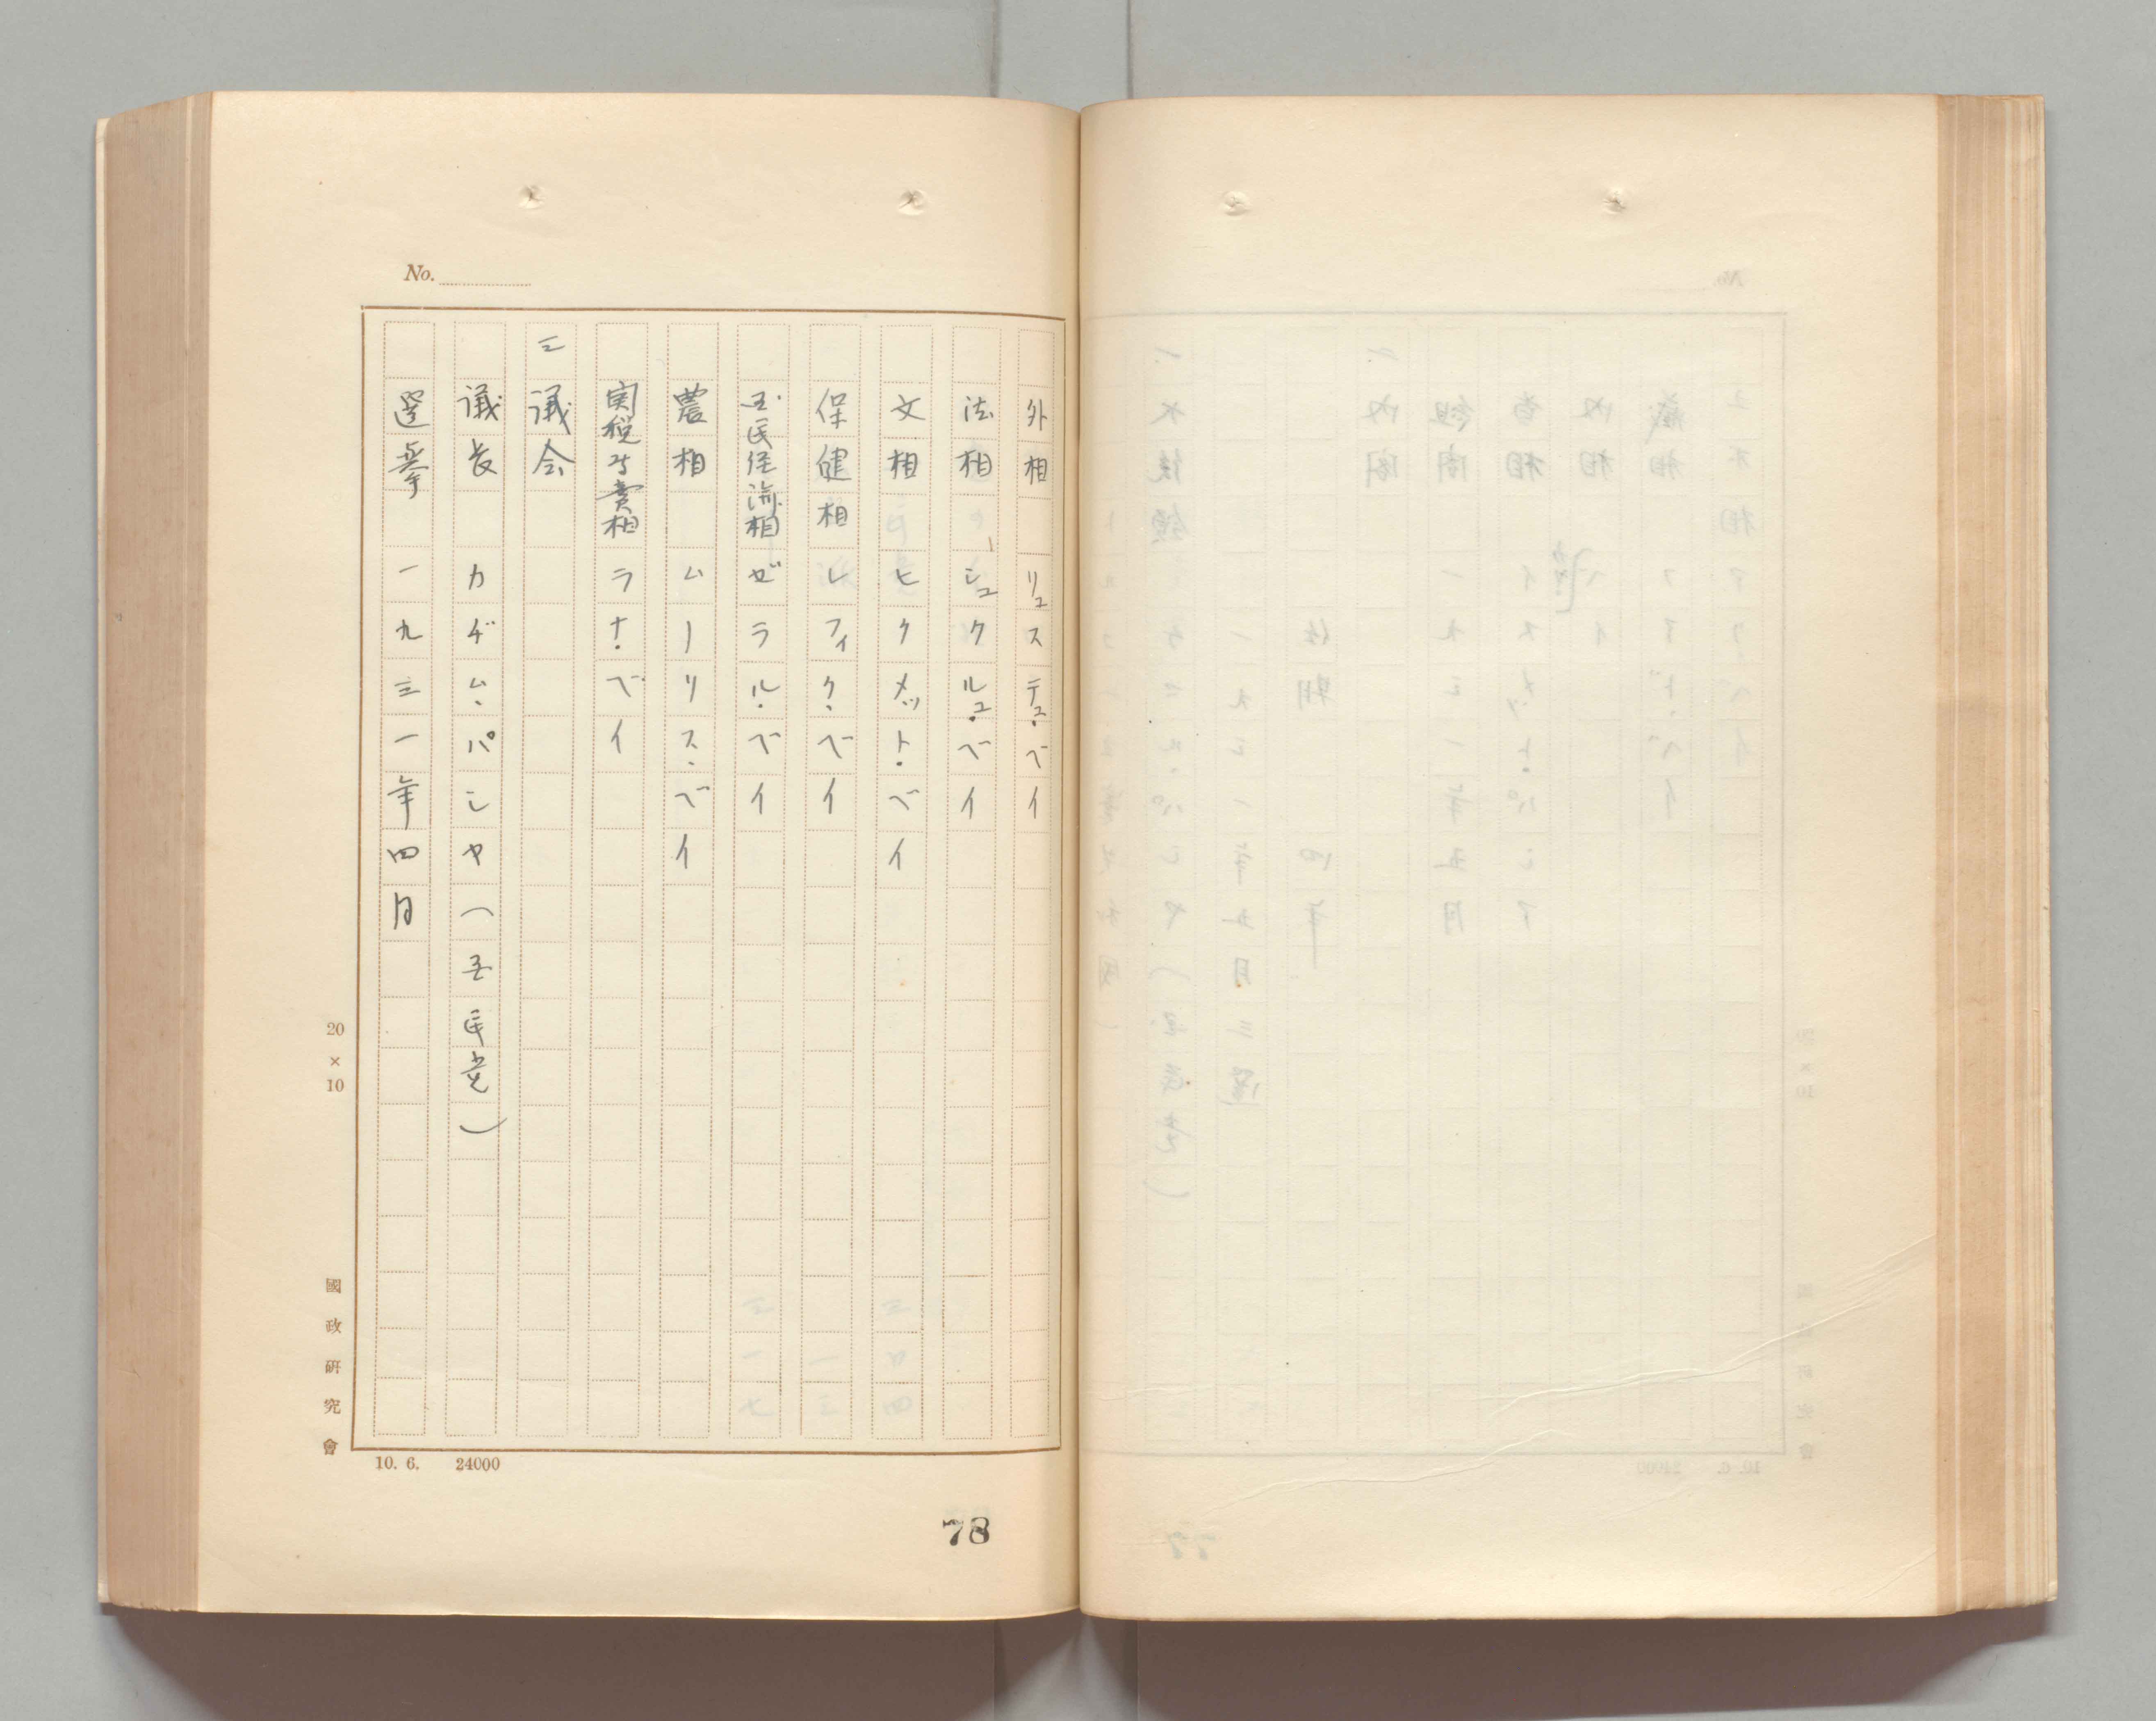 No.
外相 リュステュ・ベイ
法相 シュクルュ・ベイ
文相 ヒクメット・ベイ
保健相 レフィク・ベイ
国民経済相 ゼラル・ベイ
農相 ムーリス・ベイ
関税専賣相 ラナ・ベイ
三 議会
議長 カヂム・パシャ(国民党)
選挙 一九三一年四月
20×10
國政研究會
10. 6. 24000
78